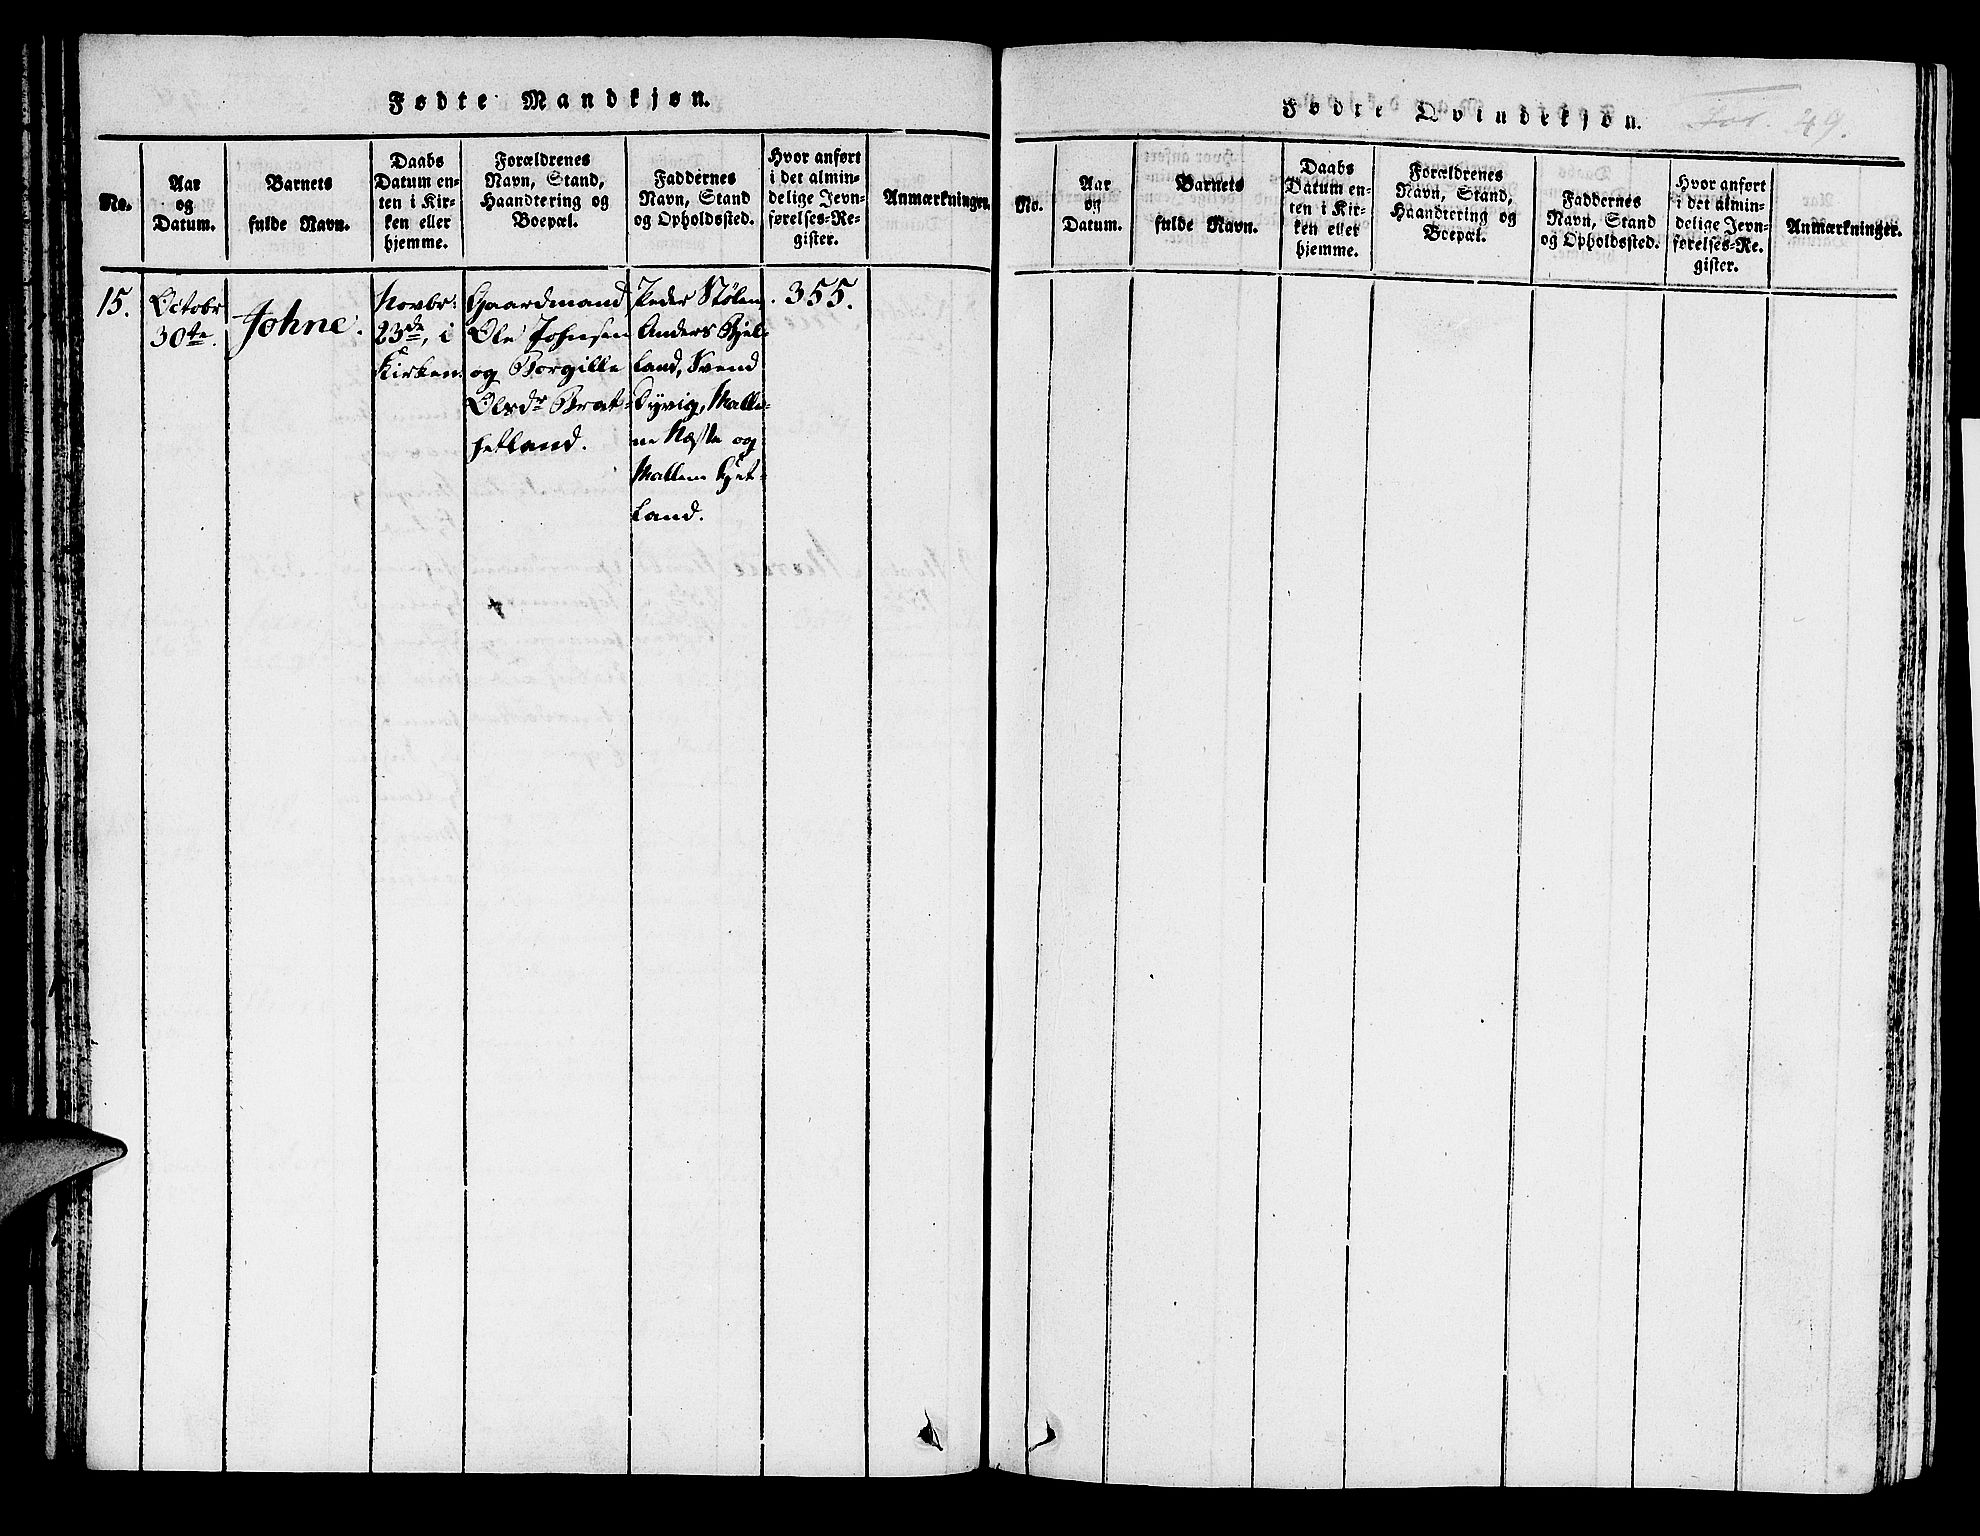 Fødte Mandkjøn.
No.
Aar
og
Datum.
Barnets
fulde Navn.
Daabs
Datum en-
ten i Kir-
ken eller
hjemme.
Forældrenes
Navn, Stand,
Haandtering og
Boepæl.
Faddernes
Navn, Stand
og Opholdssted.
Hvor anført
i det almin-
delige Jevn-
førelses-Re-
gister.
Anmærkninger.
15.
Octobr
30te.
Johne.
Novbr:
23de, i
Kirken.
Gaardmand
Ole Johnsen
og Borgille
Olsdr Brat-
hetland.
Peder Stølen
Anders Bjel-
land, Svend
Dyvig, Malle-
ne Næsse og
Mallene Hjet-
land.
355.
Fødte Qvindekjøn.
Fol. 49.
No.
Aar
og
Datum.
Barnets
fulde Navn.
Daabs
Datum en-
ten i Kir-
ken eller
hjemme.
Forældrenes
Navn, Stand,
Haandtering og
Boepæl.
Faddernes
Navn, Stand
og Opholdssted.
Hvor anført
i det almin-
delige Jevn-
førelses-Re-
gister.
Anmærkninger.